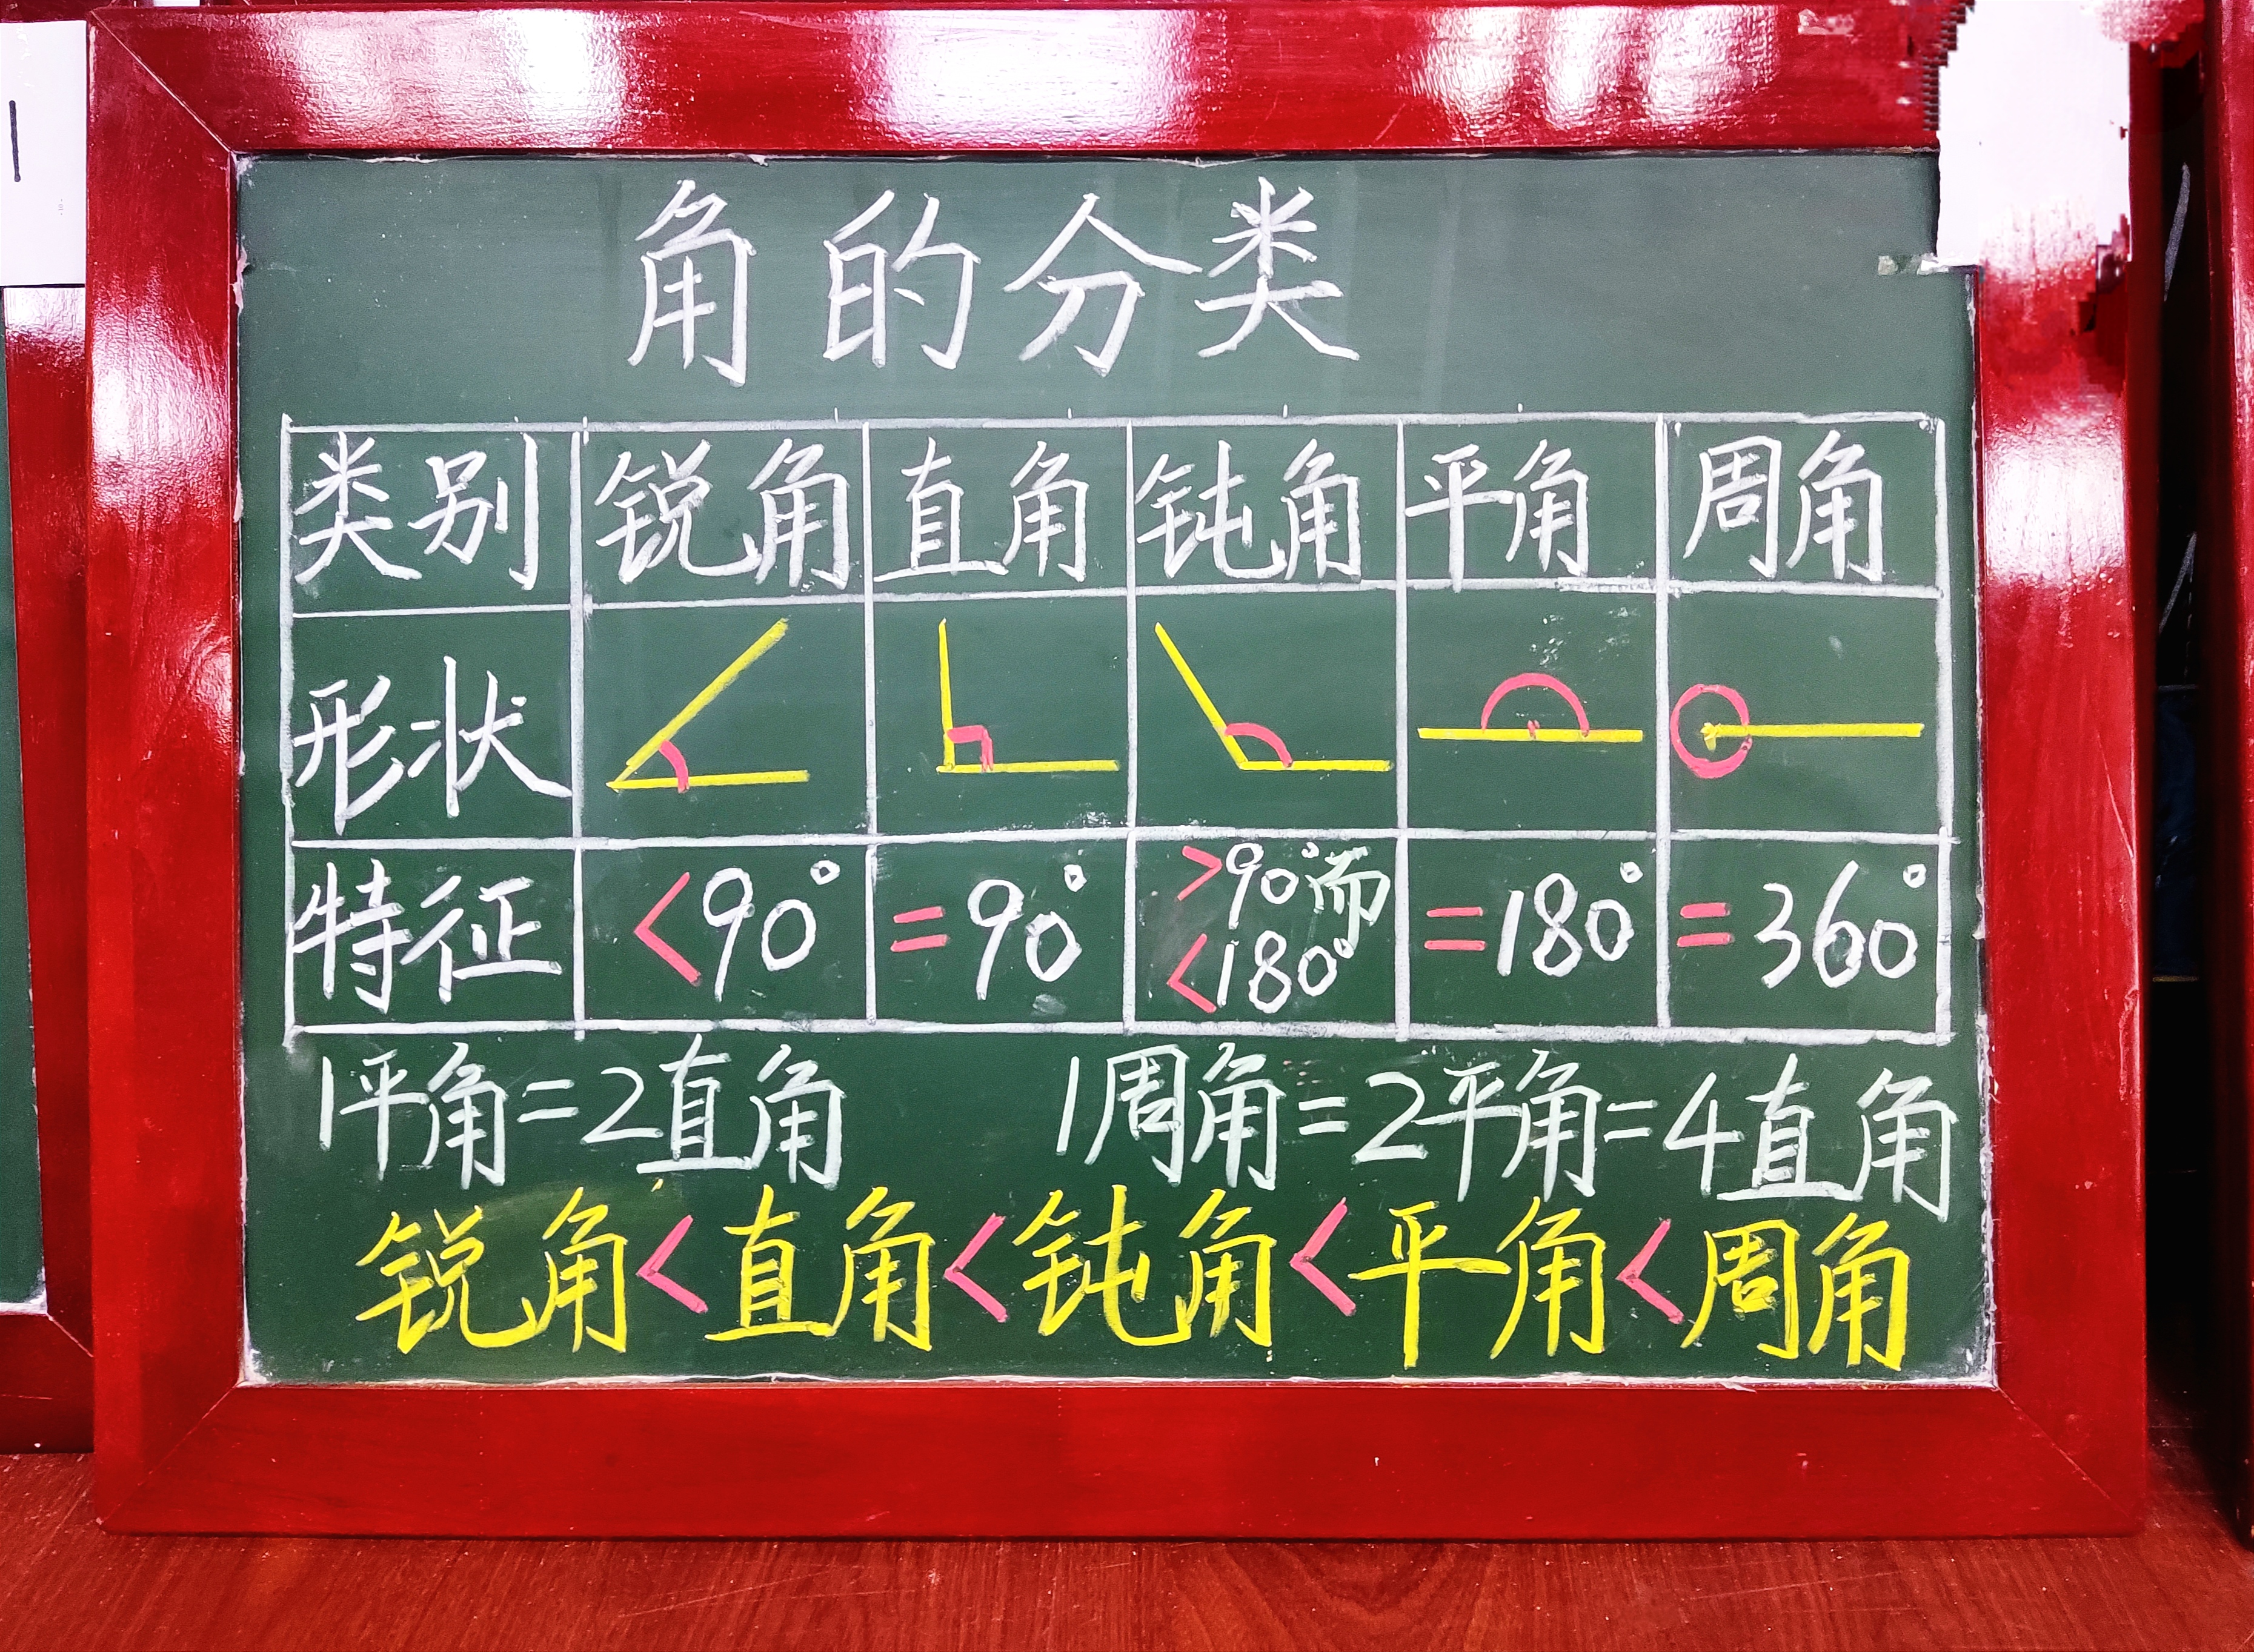 角的分类
类别 锐角 直角 钝角 平角 周角
形状
特征 <90° =90° >90°而<180° =180° =360°
1平角=2直角 1周角=2平角=4直角
锐角<直角<钝角<平角<周角